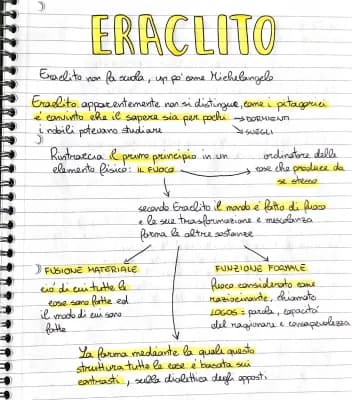 ERACLITO
Eraclito non fa scuola, un po' come Michelangelo
Eraclito apparentemente non si distingue, come i pitagorici
è convinto che il sapere sia per pochi → DORMIENTI
i nobili potevano studiare → SVEGLI
Rintraccia il primo principio in un
elemento fisico: IL FUOCO
ordinatore delle
cose che produce da
se stesso
secondo Eraclito il mondo è fatto di fuoco
e le sue trasformazione e mescolanza
forma le altre sostanze
FUSIONE MATERIALE
ciò di cui tutte le
cose sono fatte ed
il modo di cui sono
fatte
FUNZIONE FORMALE
fuoco considerato come
raziocinante, chiamato
LOGOS = parola, capacità
del ragionare e consapevolezza
La forma mediante la quale questo
struttura tutte le cose è basata sui
contrasti, sulla dialettica degli opposti